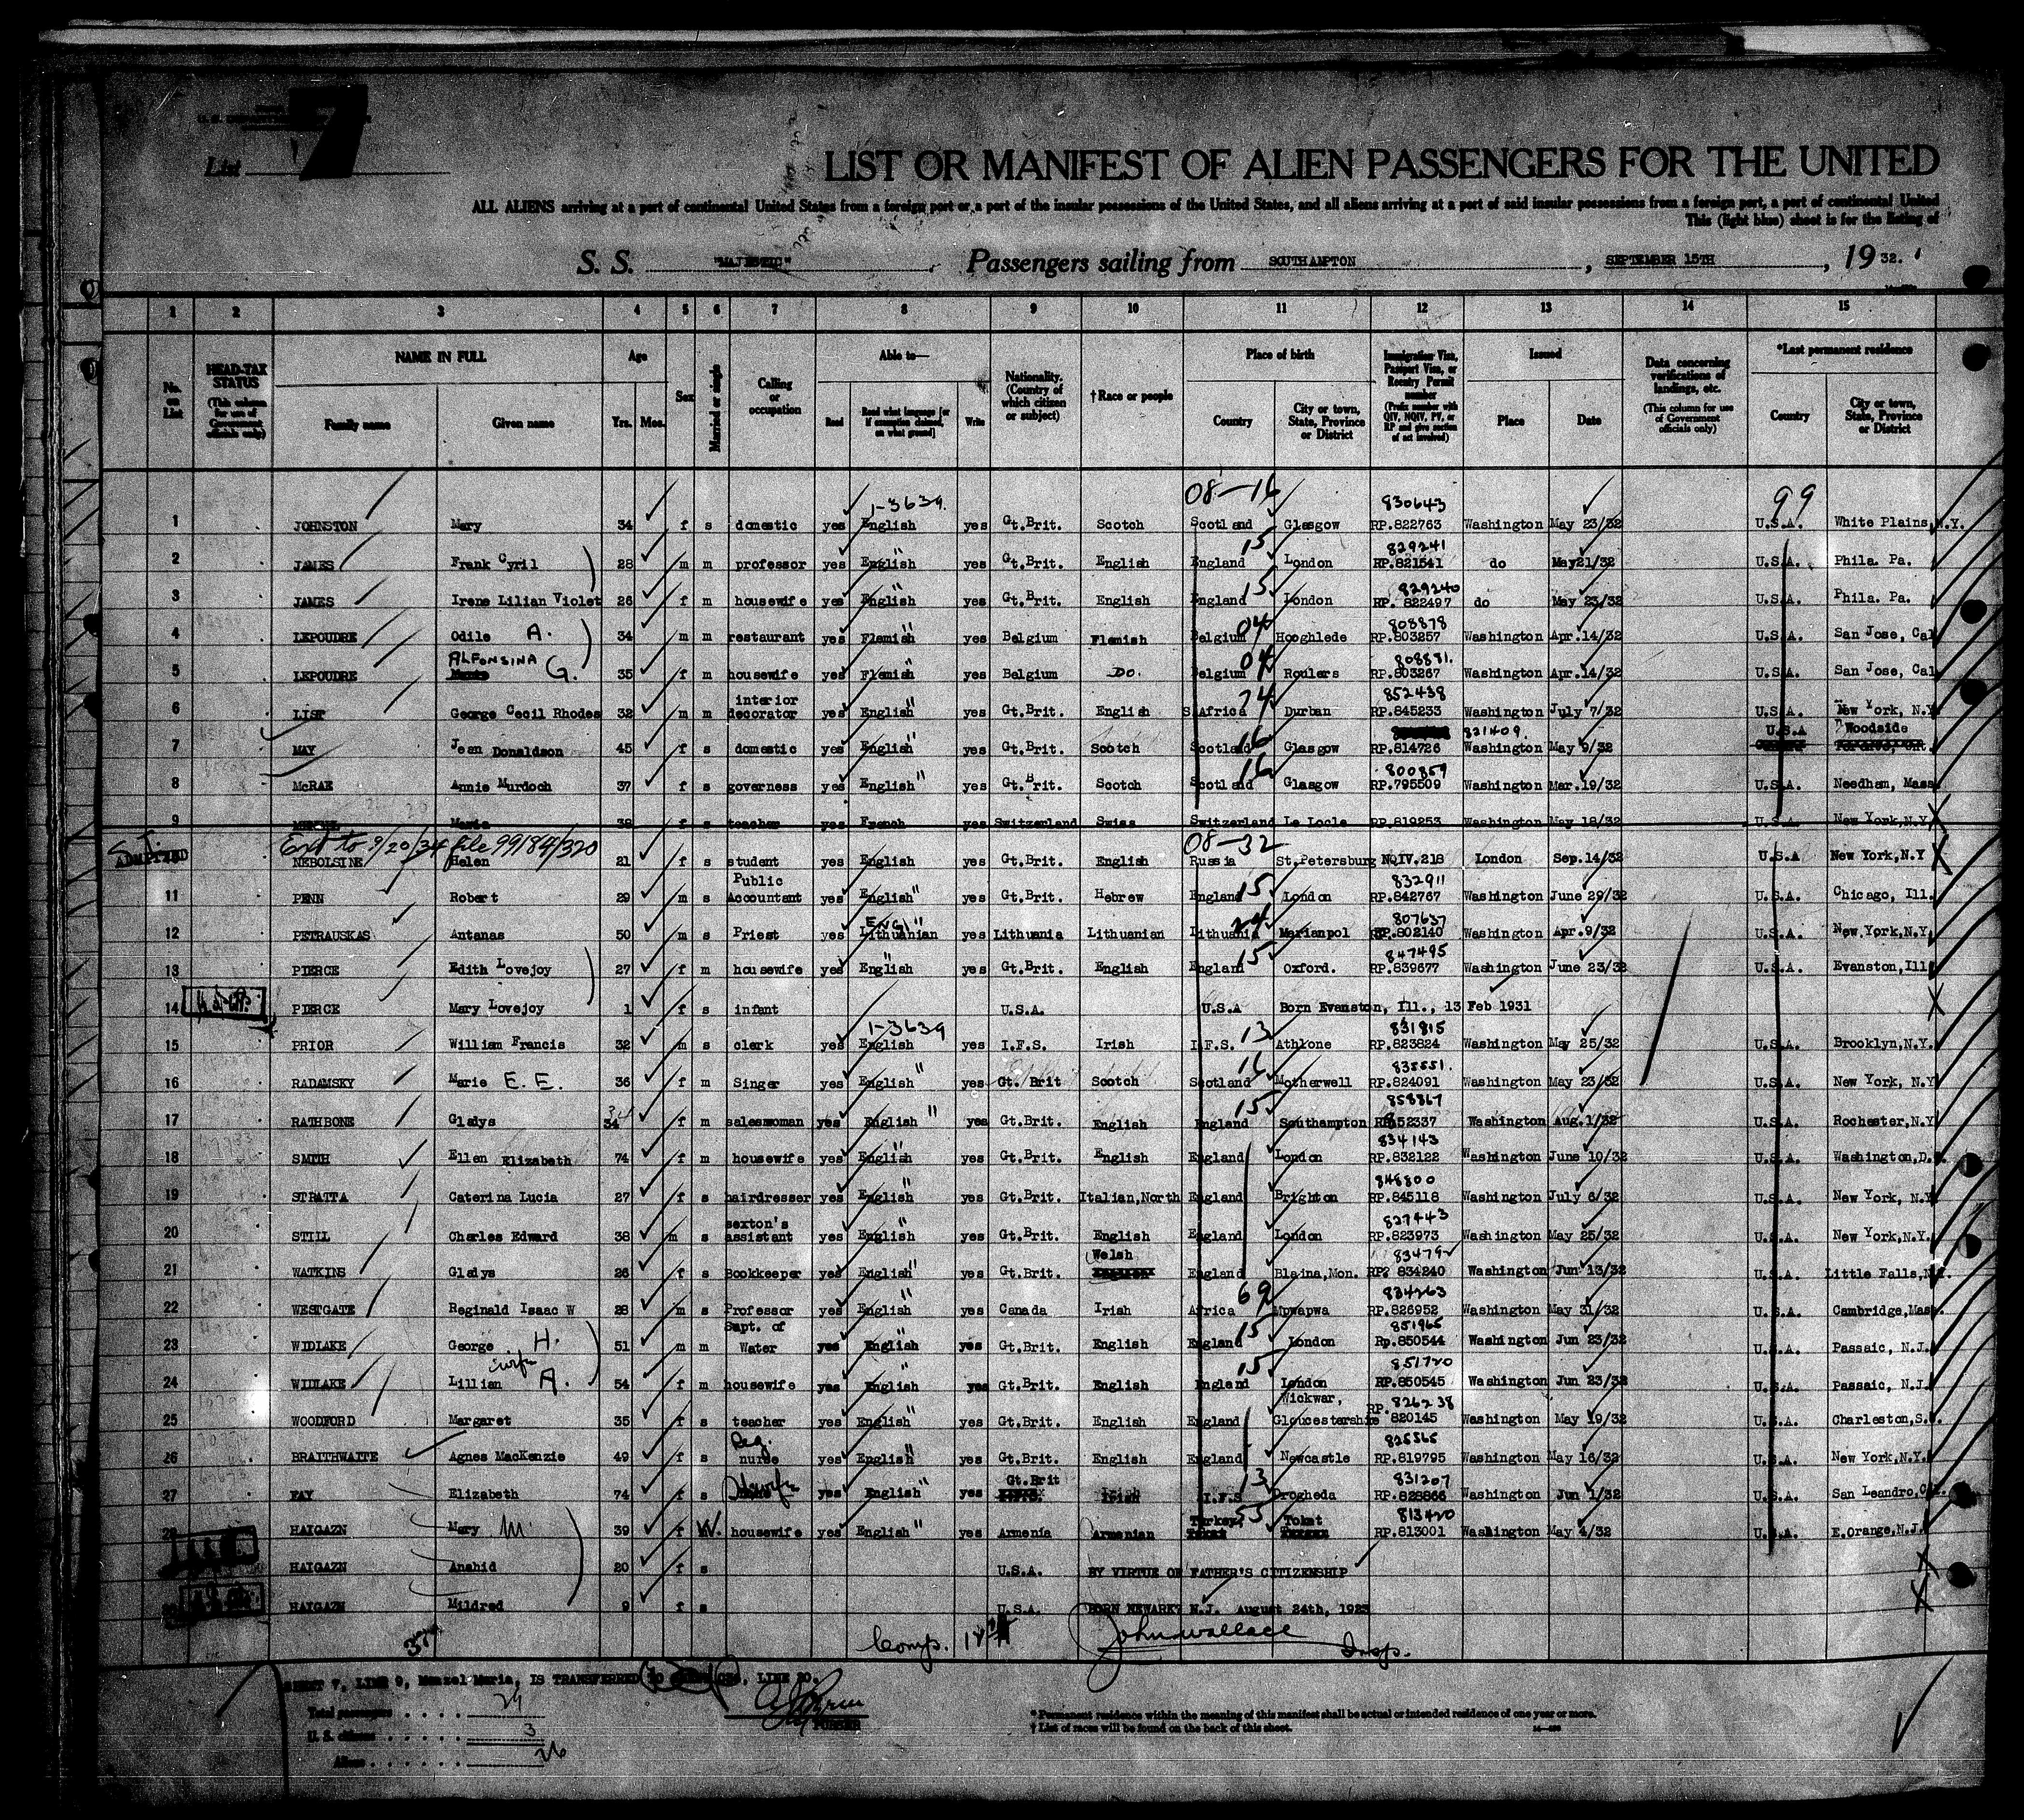 7
List
LIST OR MANIFEST OF ALIEN PASSENGERS FOR THE UNITED
ALL ALIENS arriving at a port of continental United States from a foreign port or a port of the insular possessions of the United States, and all aliens arriving at a port of said insular possessions from a foreign port, a port of continental United
This (light blue) sheet is for the listing of
S. S. "MAJESTIC" Passengers sailing from SOUTHAMPTON, SEPTEMBER 15TH, 19 32.
1 2 3 4 5 6 7 8 9 10 11 12 13 14 15
No. on List
HEAD-TAX STATUS (This column for use of Government officials only)
NAME IN FULL Family name Given name
Age Yrs. Mos.
Sex
Married or single
Calling or occupation
Able to— Read Read what language [or if exemption claimed, on what ground] Write
Nationality. (Country of which citizen or subject)
† Race or people
Place of birth Country City or town, State, Province or District
Immigration Visa, Passport Visa, or Reentry Permit number (Prefix number with QIV, NQIV, PV, or RP and give section of act involved)
Issued Place Date
Data concerning verifications of landings, etc. (This column for use of Government officials only)
*Last permanent residence Country City or town, State, Province or District
1-3639. 08-16 830643 99
1 JOHNSTON Mary 34 f s domestic yes English yes Gt.Brit. Scotch Scotland Glasgow RP.822763 Washington May 23/32 U.S.A. White Plains, N.Y.
15 829241
2 JAMES Frank Cyril 28 m m professor yes English yes Gt.Brit. English England London RP.821541 do May21/32 U.S.A. Phila. Pa.
15 829240
3 JAMES Irene Lilian Violet 26 f m housewife yes English yes Gt.Brit. English England London RP. 822497 do May 23/32 U.S.A. Phila. Pa.
04 808878
4 LEPOUDRE Odile A. 34 m m restaurant yes Flemish yes Belgium Flemish Belgium Hooghlede RP.803257 Washington Apr.14/32 U.S.A. San Jose, Cal
ALFONSINA 04 808881.
5 LEPOUDRE G. 35 f m housewife yes Flemish yes Belgium Do. Belgium Roulers RP.803267 Washington Apr.14/32 U.S.A. San Jose, Cal
interior 74 852438
6 LIST George Cecil Rhodes 32 m m decorator yes English yes Gt.Brit. English S.Africa Durban RP.845233 Washington July 7/32 U.S.A. New York, N.Y
16 821409. U.S.A Woodside
7 MAY Jean Donaldson 45 f s domestic yes English yes Gt.Brit. Scotch Scotland Glasgow RP.814726 Washington May 9/32
16 800859
8 McRAE Annie Murdoch 37 f s governess yes English yes Gt.Brit. Scotch Scotland Glasgow RP.795509 Washington Mar.19/32 U.S.A. Needham, Mass.
9 Marie 38 f s teacher yes French yes Switzerland Swiss Switzerland Le Locle RP.819253 Washington May 18/32 U.S.A. New York,N.Y.
Ext to 9/20/34 file 99184/320 08-32
ADMITTED NEBOLSINE Helen 21 f s student yes English yes Gt.Brit. English Russia St.Petersburg NQIV.218 London Sep.14/32 U.S.A New York,N.Y
Public 15 832911
11 PENN Robert 29 m s Accountant yes English yes Gt.Brit. Hebrew England London RP.842767 Washington June 29/32 U.S.A. Chicago, Ill.
ENG 24 807637
12 PETRAUSKAS Antanas 50 m s Priest yes Lithuanian yes Lithuania Lithuanian Lithuania Marianpol RP.802140 Washington Apr.9/32 U.S.A. New York,N.Y.
15 847495
13 PIERCE Edith Lovejoy 27 f m housewife yes English yes Gt.Brit. English England Oxford. RP.839677 Washington June 23/32 U.S.A. Evanston,Ill
14 PIERCE Mary Lovejoy 1 f s infant U.S.A. U.S.A Born Evanston, Ill., 13 Feb 1931
1-3639 13 831815
15 PRIOR William Francis 32 m s clerk yes English yes I.F.S. Irish I.F.S. Athlone RP.823824 Washington May 25/32 U.S.A. Brooklyn,N.Y.
16 835551.
16 RADAMSKY Marie E. E. 36 f m Singer yes English yes Gt. Brit Scotch Scotland Motherwell RP.824091 Washington May 23/32 U.S.A. New York, N.Y
15 858867
17 RATHBONE Gladys 34 f m saleswoman yes English yes Gt.Brit. English England Southampton RP.852337 Washington Aug.1/32 U.S.A. Rochester,N.Y
834143
18 SMITH Ellen Elizabeth 74 f m housewife yes English yes Gt.Brit. English England London RP.832122 Washington June 10/32 U.S.A. Washington,D.
848800
19 STRATTA Caterina Lucia 27 f s hairdresser yes English yes Gt.Brit. Italian,North England Brighton RP.845118 Washington July 6/32 U.S.A. New York, N.Y
sexton's 827443
20 STILL Charles Edward 38 m s assistant yes English yes Gt.Brit. English England London RP.823973 Washington May 25/32 U.S.A. New York,N.Y.
Welsh 834792
21 WATKINS Gladys 26 f s Bookkeeper yes English yes Gt.Brit. England Blaina,Mon. RP. 834240 Washington Jun 13/32 U.S.A. Little Falls,N.Y.
69 834263
22 WESTGATE Reginald Isaac W 28 m s Professor yes English yes Canada Irish Africa Mpwapwa RP.826952 Washington May 31/32 U.S.A. Cambridge,Mass.
Supt. of 15 851965
23 WIDLAKE George H. 51 m m Water yes English yes Gt.Brit. English England London Rp.850544 Washington Jun 23/32 U.S.A. Passaic, N.J.
wife 15 851720
24 WIDLAKE Lillian A. 54 f m housewife yes English yes Gt.Brit. English England London RP.850545 Washington Jun 23/32 U.S.A. Passaic, N.J.
Wickwar, RP. 826238
25 WOODFORD Margaret 35 f s teacher yes English yes Gt.Brit. English England Gloucestershire 820145 Washington May 19/32 U.S.A. Charleston,S.C.
Reg. 825565
26 BRAITHWAITE Agnes MacKenzie 49 f s nurse yes English yes Gt.Brit. English England Newcastle RP.819795 Washington May 16/32 U.S.A. New York,N.Y.
Gt.Brit 13 831207
27 FAY Elizabeth 74 f s yes English yes Irish I.F.S Drogheda RP.828866 Washington Jun 1/32 U.S.A. San Leandro,Cal.
Turkey 53 Tokat 813420
28 HAIGAZN Mary M. 39 f W. housewife yes English yes Armenia Armenian RP.813001 Washington May 4/32 U.S.A. E.Orange,N.J.
HAIGAZN Anahid 20 f s U.S.A. BY VIRTUE OF FATHER'S CITIZENSHIP
HAIGAZN Mildred 9 f s U.S.A. BORN NEWARK, N.J. August 24th, 1923
Comp. John Wallace Insp.
SHEET 7, LINE 9, Menzel Marie, IS TRANSFERRED TO LINE 20.
Total passengers 29
U. S. citizens 3
Aliens 26
PURSER
* Permanent residence within the meaning of this manifest shall be actual or intended residence of one year or more.
† List of races will be found on the back of this sheet.